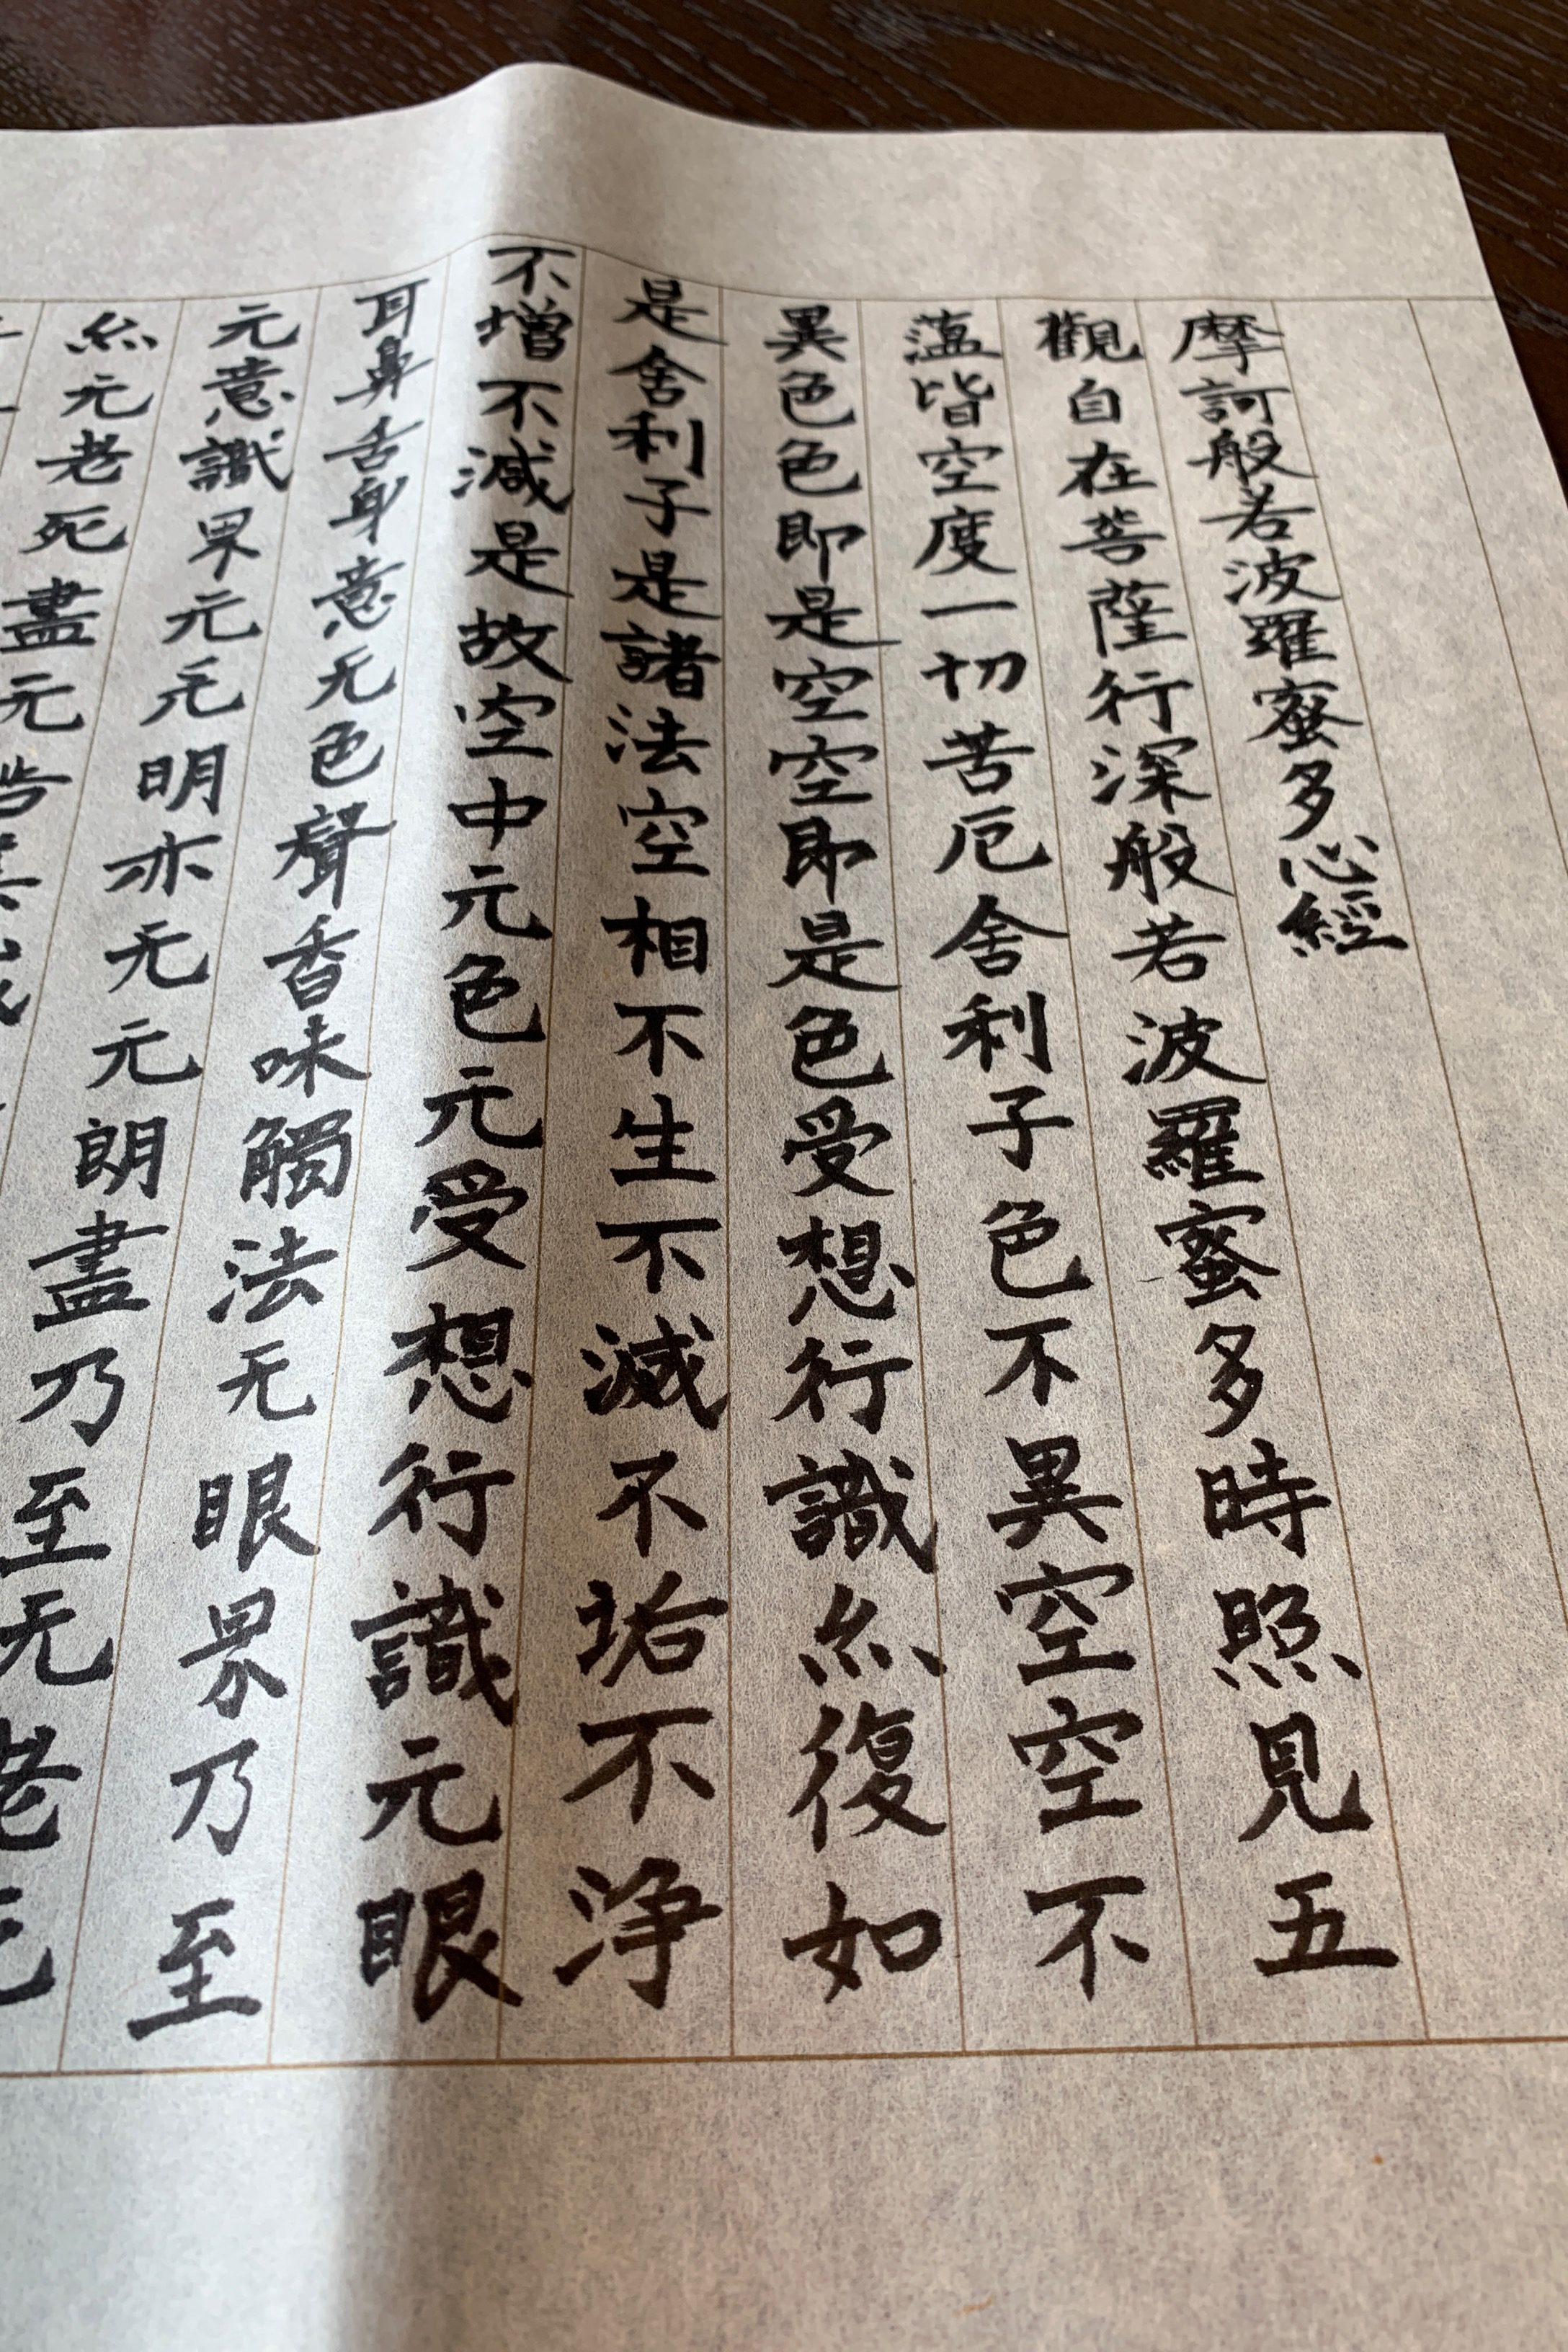 摩訶般若波羅蜜多心經
觀自在菩薩行深般若波羅蜜多時照見五
薀皆空度一切苦厄舍利子色不異空空不
異色色即是空空即是色受想行識亦復如
是舍利子是諸法空相不生不滅不垢不淨
不增不減是故空中无色无受想行識无眼
耳鼻舌身意无色聲香味觸法无眼界乃至
无意識界无无明亦无无明盡乃至无老无
亦无老死盡无